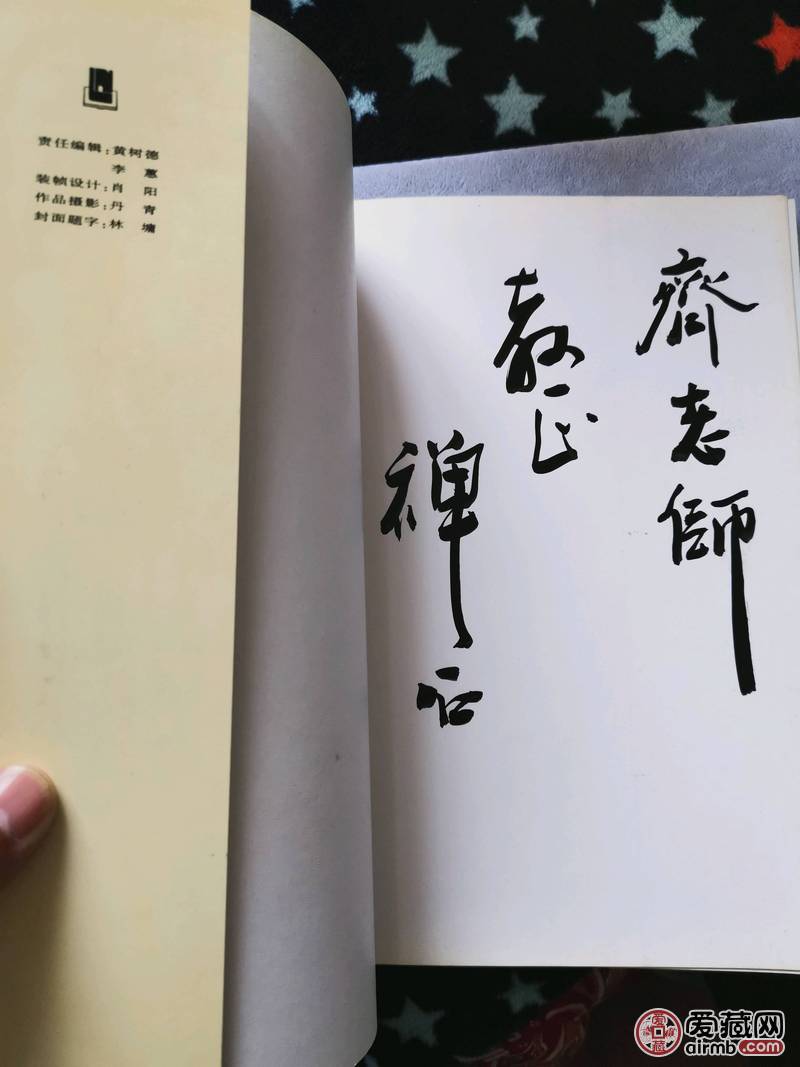 责任编辑:黄树德
李 蕙
装帧设计:肖 阳
作品摄影:丹 青
封面题字:林 墉
齊老師
教正
禅
爱藏网
airmb.com